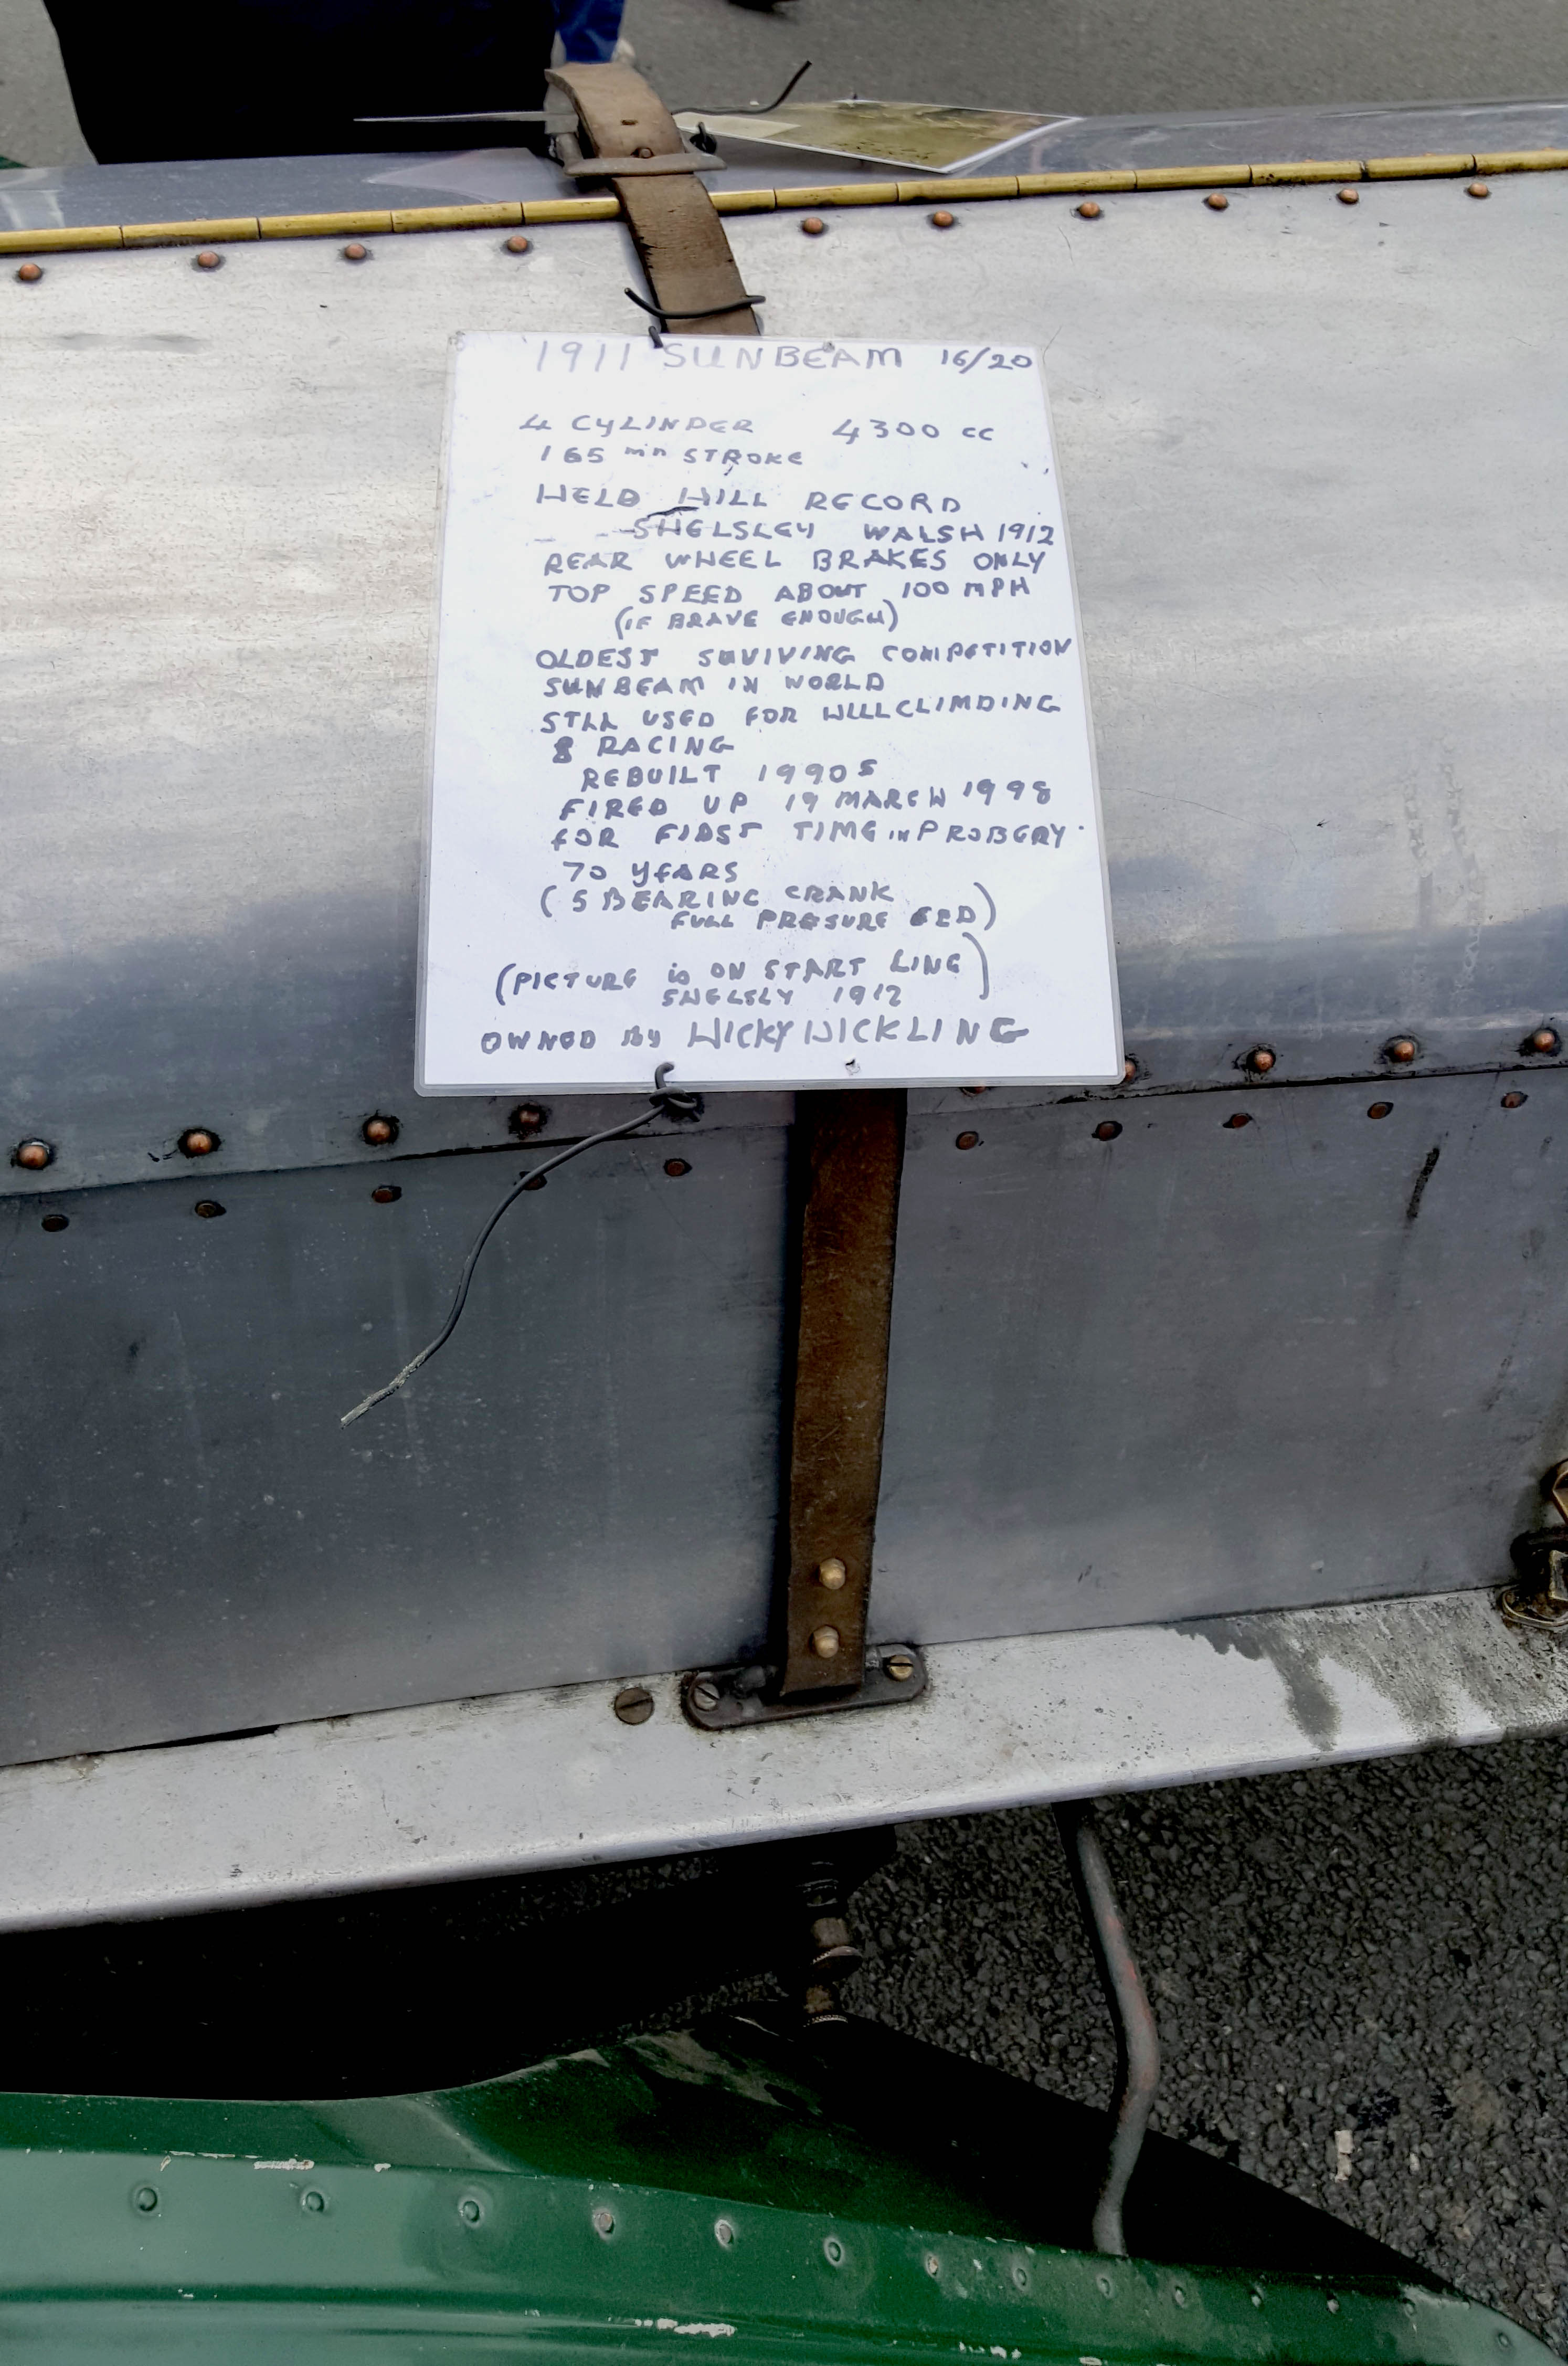 1911 SUNBEAM 16/20
4 CYLINDER 4300 cc
165 mm STROKE
HELD HILL RECORD
SHELSLEY WALSH 1912
REAR WHEEL BRAKES ONLY
TOP SPEED ABOUT 100 MPH
(IF BRAVE ENOUGH)
OLDEST SUVIVING COMPETITION
SUNBEAM IN WORLD
STILL USED FOR HILLCLIMBING
& RACING
REBUILT 1990s
FIRED UP 19 MARCH 1998
FOR FIRST TIME in PROBERY
70 YEARS
(5 BEARING CRANK
FULL PRESURE FED)
(PICTURE is ON START LINE)
SHELSLY 1912
OWNED By